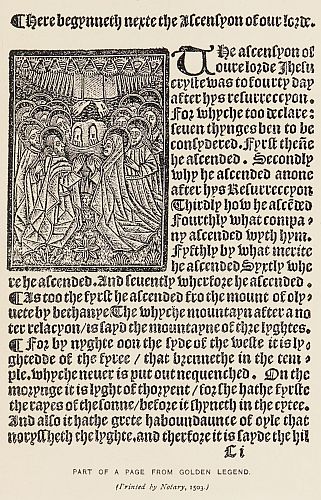 ¶ Here begynneth nexte the Ascensyon of our lorde.
THe ascensyon of
oure lorde Jhesu
cryste was to fourty day
after hys resurreccyon.
For whyche too declare:
seuen thynges ben to be
consydered. Fyrst thẽne
he ascended. Secondly
why he ascended anone
after hys Resurreccyon
Thirdly how he ascẽded
Fourthly what compa-
ny ascended wyth hym.
Fyfthly by what merite
he ascended Syxtly whe
re he ascended. And seuently wherfore he ascended.
¶ As too the fyrst he ascended fro the mount of oly-
uete by bethanye The whyche mountayn after a no
ter relacyon/is sayd the mountayne of thre lyghtes.
¶ For by nyghte oon the syde of the weste it is ly-
ghtedde of the fyree / that brenneth in the tem-
ple. whyche neuer is put out ne quenched. On the
morynge it is lyght of thoryent / for she hath fyrste
the rayes of the sonne/before it shyneth in the cytee.
And also it hathe grete haboundaunce of oyle that
norysshech the lyghte. and therfore it is sayde the hil
L i
PART OF A PAGE FROM GOLDEN LEGEND.
(Printed by Notary, 1503.)